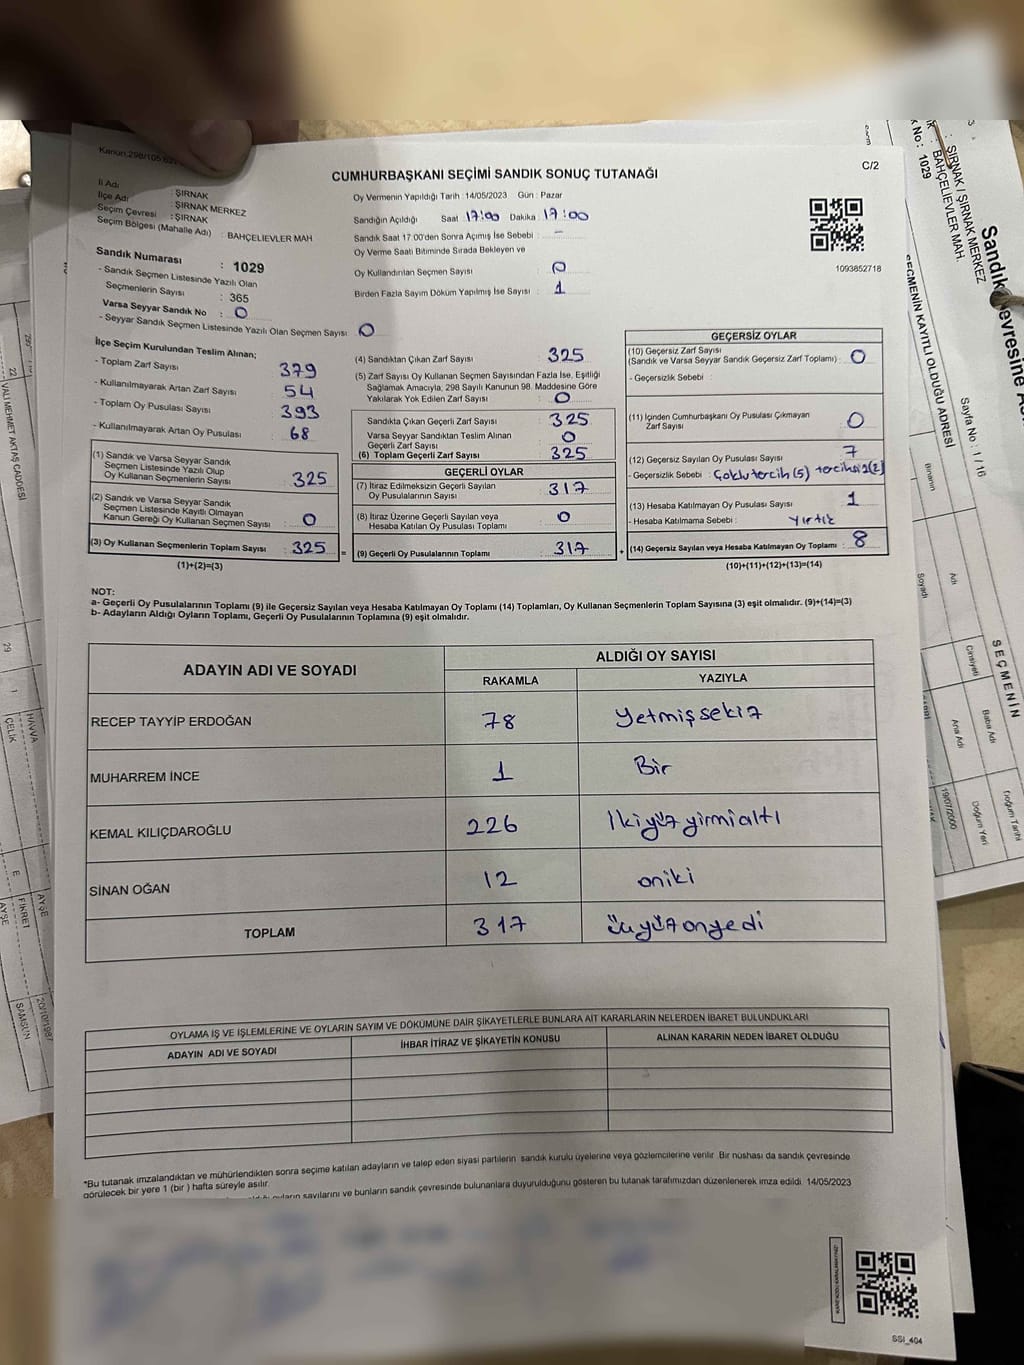 CUMHURBAŞKANI SEÇİMİ SANDIK SONUÇ TUTANAĞI
C/2
İl Adı : ŞIRNAK
İlçe Adı : ŞIRNAK MERKEZ
Seçim Çevresi : ŞIRNAK
Seçim Bölgesi (Mahalle Adı) : BAHÇELİEVLER MAH
Sandık Numarası : 1029
- Sandık Seçmen Listesinde Yazılı Olan
Seçmenlerin Sayısı : 365
Varsa Seyyar Sandık No : 0
- Seyyar Sandık Seçmen Listesinde Yazılı Olan Seçmen Sayısı: 0
Oy Vermenin Yapıldığı Tarih :14/05/2023 Gün : Pazar
Sandığın Açıldığı Saat 17:00 Dakika 17:00
Sandık Saat 17.00'den Sonra Açımış İse Sebebi : -
Oy Verme Saati Bitiminde Sırada Bekleyen ve
Oy Kullandırılan Seçmen Sayısı : 0
Birden Fazla Sayım Döküm Yapılmış İse Sayısı : 1
1093852718
İlçe Seçim Kurulundan Teslim Alınan;
- Toplam Zarf Sayısı 379
- Kullanılmayarak Artan Zarf Sayısı 54
- Toplam Oy Pusulası Sayısı 393
- Kullanılmayarak Artan Oy Pusulası 68
(1) Sandık ve Varsa Seyyar Sandık
Seçmen Listesinde Yazılı Olup
Oy Kullanan Seçmenlerin Sayısı 325
(2) Sandık ve Varsa Seyyar Sandık
Seçmen Listesinde Kayıtlı Olmayan
Kanun Gereği Oy Kullanan Seçmen Sayısı : 0
(3) Oy Kullanan Seçmenlerin Toplam Sayısı : 325
(1)+(2)=(3)
(4) Sandıktan Çıkan Zarf Sayısı : 325
(5) Zarf Sayısı Oy Kullanan Seçmen Sayısından Fazla İse, Eşitliği
Sağlamak Amacıyla, 298 Sayılı Kanunun 98. Maddesine Göre
Yakılarak Yok Edilen Zarf Sayısı : 0
Sandıkta Çıkan Geçerli Zarf Sayısı : 325
Varsa Seyyar Sandıktan Teslim Alınan
Geçerli Zarf Sayısı : 0
(6) Toplam Geçerli Zarf Sayısı : 325
GEÇERLİ OYLAR
(7) İtiraz Edilmeksizin Geçerli Sayılan
Oy Pusulalarının Sayısı : 317
(8) İtiraz Üzerine Geçerli Sayılan veya
Hesaba Katılan Oy Pusulası Toplamı : 0
= (9) Geçerli Oy Pusulalarının Toplamı : 317
GEÇERSİZ OYLAR
(10) Geçersiz Zarf Sayısı
(Sandık ve Varsa Seyyar Sandık Geçersiz Zarf Toplamı) : 0
- Geçersizlik Sebebi :
(11) İçinden Cumhurbaşkanı Oy Pusulası Çıkmayan
Zarf Sayısı 0
(12) Geçersiz Sayılan Oy Pusulası Sayısı : 7
- Geçersizlik Sebebi : Çoklu tercih (5) tercihsiz(2)
(13) Hesaba Katılmayan Oy Pusulası Sayısı : 1
- Hesaba Katılmama Sebebi : yırtık
+ (14) Geçersiz Sayılan veya Hesaba Katılmayan Oy Toplamı : 8
(10)+(11)+(12)+(13)=(14)
NOT:
a- Geçerli Oy Pusulalarının Toplamı (9) ile Geçersiz Sayılan veya Hesaba Katılmayan Oy Toplamı (14) Toplamları, Oy Kullanan Seçmenlerin Toplam Sayısına (3) eşit olmalıdır. (9)+(14)=(3)
b- Adayların Aldığı Oyların Toplamı, Geçerli Oy Pusulalarının Toplamına (9) eşit olmalıdır.
ADAYIN ADI VE SOYADI
ALDIĞI OY SAYISI
RAKAMLA YAZIYLA
RECEP TAYYİP ERDOĞAN 78 Yetmişsekiz
MUHARREM İNCE 1 Bir
KEMAL KILIÇDAROĞLU 226 İkiyüzyirmialtı
SİNAN OĞAN 12 oniki
TOPLAM 317 üçyüzonyedi
OYLAMA İŞ VE İŞLEMLERİNE VE OYLARIN SAYIM VE DÖKÜMÜNE DAİR ŞİKAYETLERLE BUNLARA AİT KARARLARIN NELERDEN İBARET BULUNDUKLARI
ADAYIN ADI VE SOYADI İHBAR İTİRAZ VE ŞİKAYETİN KONUSU ALINAN KARARIN NEDEN İBARET OLDUĞU
*Bu tutanak imzalandıktan ve mühürlendikten sonra seçime katılan adayların ve talep eden siyasi partilerin sandık kurulu üyelerine veya gözlemcilerine verilir. Bir nüshası da sandık çevresinde
görülecek bir yere 1 (bir ) hafta süreyle asılır.
oyların sayılarını ve bunların sandık çevresinde bulunanlara duyurulduğunu gösteren bu tutanak tarafımızdan düzenlenerek imza edildi. 14/05/2023
SSI_404
ŞIRNAK / ŞIRNAK MERKEZ
BAHÇELİEVLER MAH.
No : 1029
Sayfa No : 1 / 16
SEÇMENİN KAYITLI OLDUĞU ADRESİ
Binanın
SEÇMENİN
Soyadı
Adı
Cinsiyeti
Ana Adı
Baba Adı
Doğum Yeri
Doğum Tarihi
19/07/2000
22
VALİ MEHMET AKTAŞ CADDESİ
29
1
ÇELİK
HAVVA
E
FİKRET
AYŞE
AYŞE
SAMSUN
20/10/1987